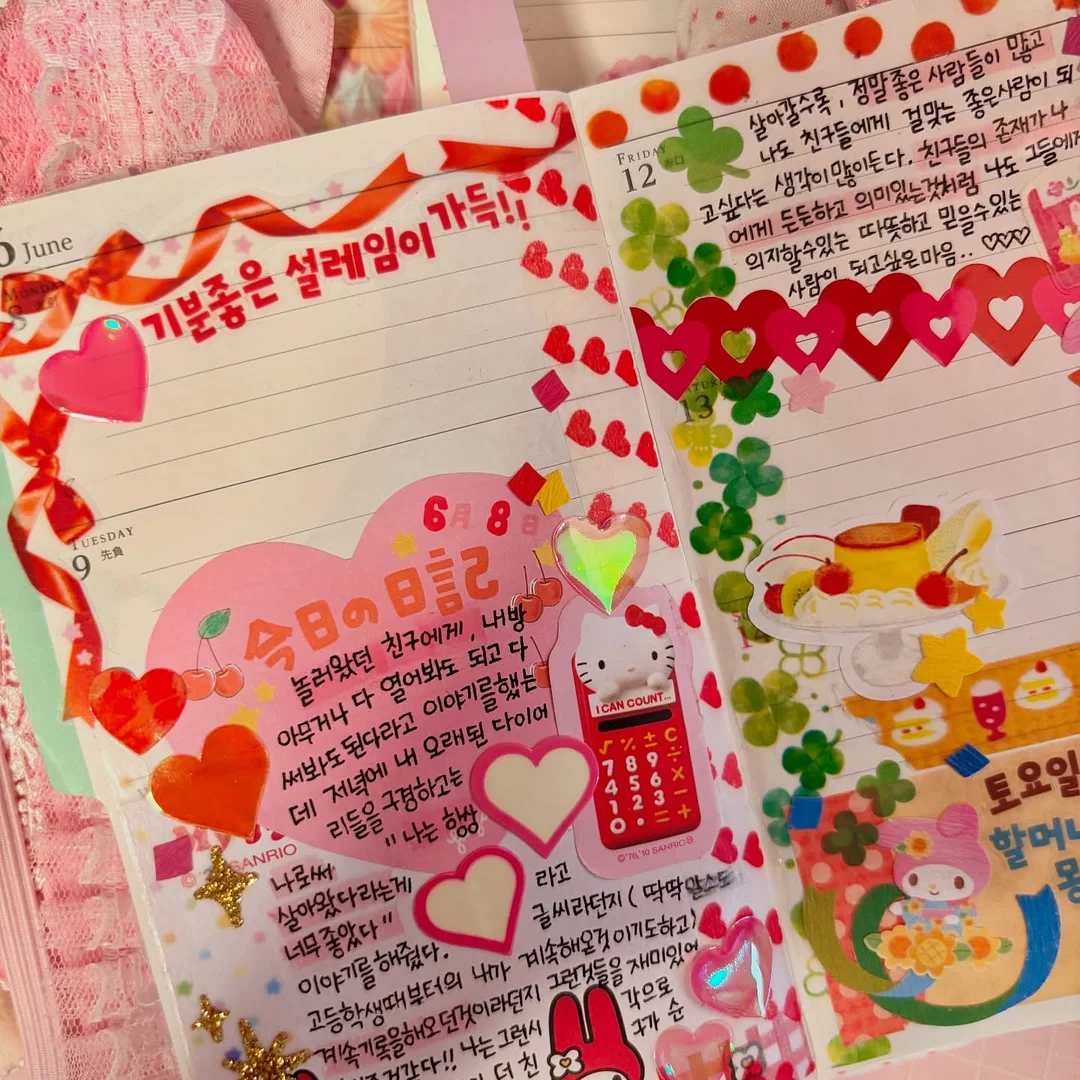 6 June
MONDAY
8
기분좋은 설레임이 가득!!
TUESDAY
9 先負
6月 8日
今日の日記
놀러왔던 친구에게, 내방
아무거나 다 열어봐도 되고 다
써봐도된다라고 이야기를했는
데 저녁에 내 오래된 다이어
리들을 구경하고는
"나는
SANRIO
I CAN COUNT...
√ % ± C
7 8 9 ÷
4 5 6 ×
1 2 3 -
0 . = +
©'76,'10 SANRIO
나로써 라고
살아왔다라는게
너무좋았다"
글씨라던지 (딱딱
이야기를 해줬다. 계속해온것 이기도하고)
고등학생때부터의 내가 그런것들을 재미있어
계속기록을해오던것이라던지 각으로
나는 그런시 순
더 친
FRIDAY
12
살아갈수록, 정말좋은 사람들이 많고
나도 친구들에게 걸맞는 좋은사람이 되
고싶다는 생각이많이든다. 친구들의 존재가 나
에게 든든하고 의미있는것처럼 나도 그들에게
의지할수있는 따뜻하고 믿을수있는
사람이 되고싶은마음.. ♡♡♡
13
토요일
할머니